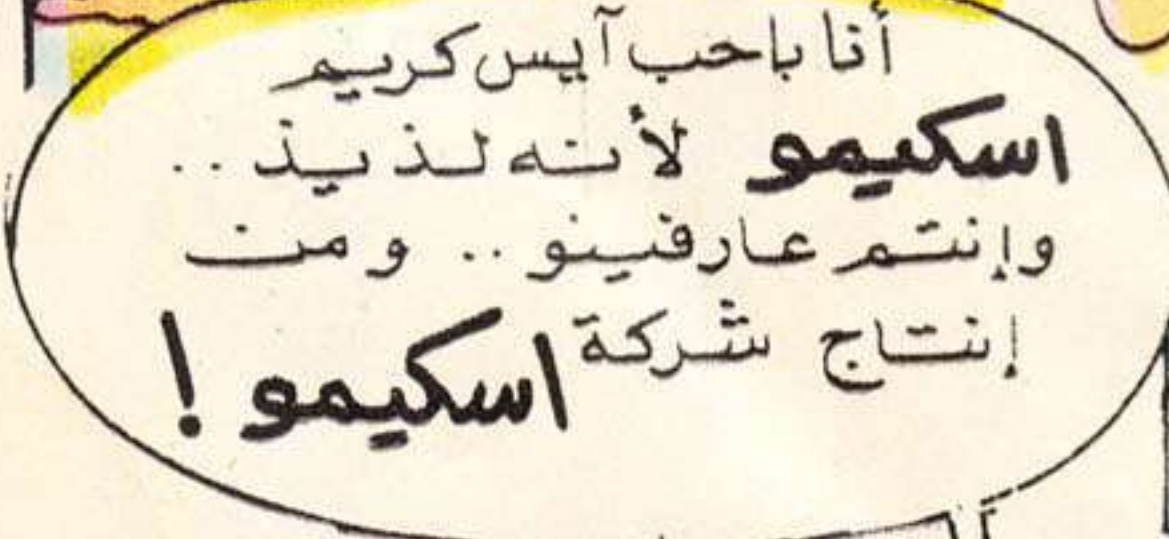 أنا باحب آيس كريم
اسكيمو لأنه لذيذ ..
وإنتم عارفينو .. ومن
إنتاج شركة اسكيمو !